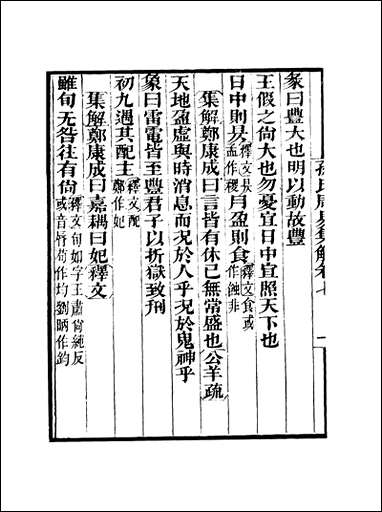 孫氏周易集解卷七
彖曰豐大也明以動故豐
王假之尚大也勿憂宜日中宜照天下也
日中則昃釋文昃孟作稷月盈則食釋文食或作蝕非
集解鄭康成曰言皆有休已無常盛也公羊疏
天地盈虛與時消息而況於人乎況於鬼神乎
象曰雷電皆至豐君子以折獄致刑
初九遇其配主釋文配鄭作妃
集解鄭康成曰嘉耦曰妃釋文
雖旬无咎往有尚釋文旬如字王肅尚純反或音脣荀作均劉昞作鈞